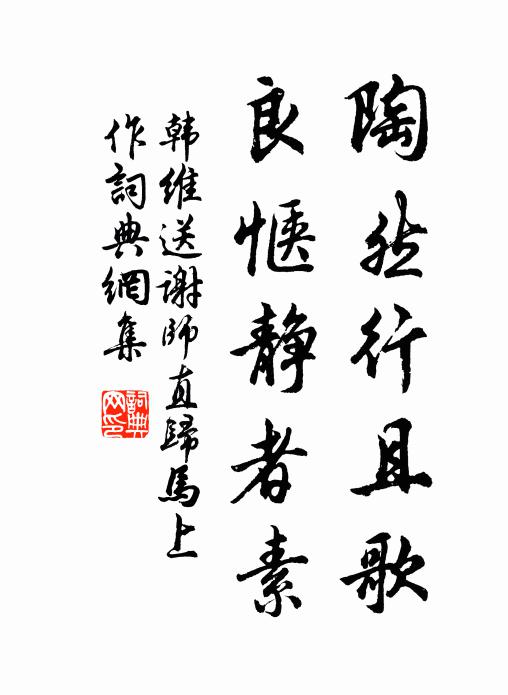 陶然行且歌
良惬静者素
韩维送谢師直歸馬上
作詞典網集
詞典
网印